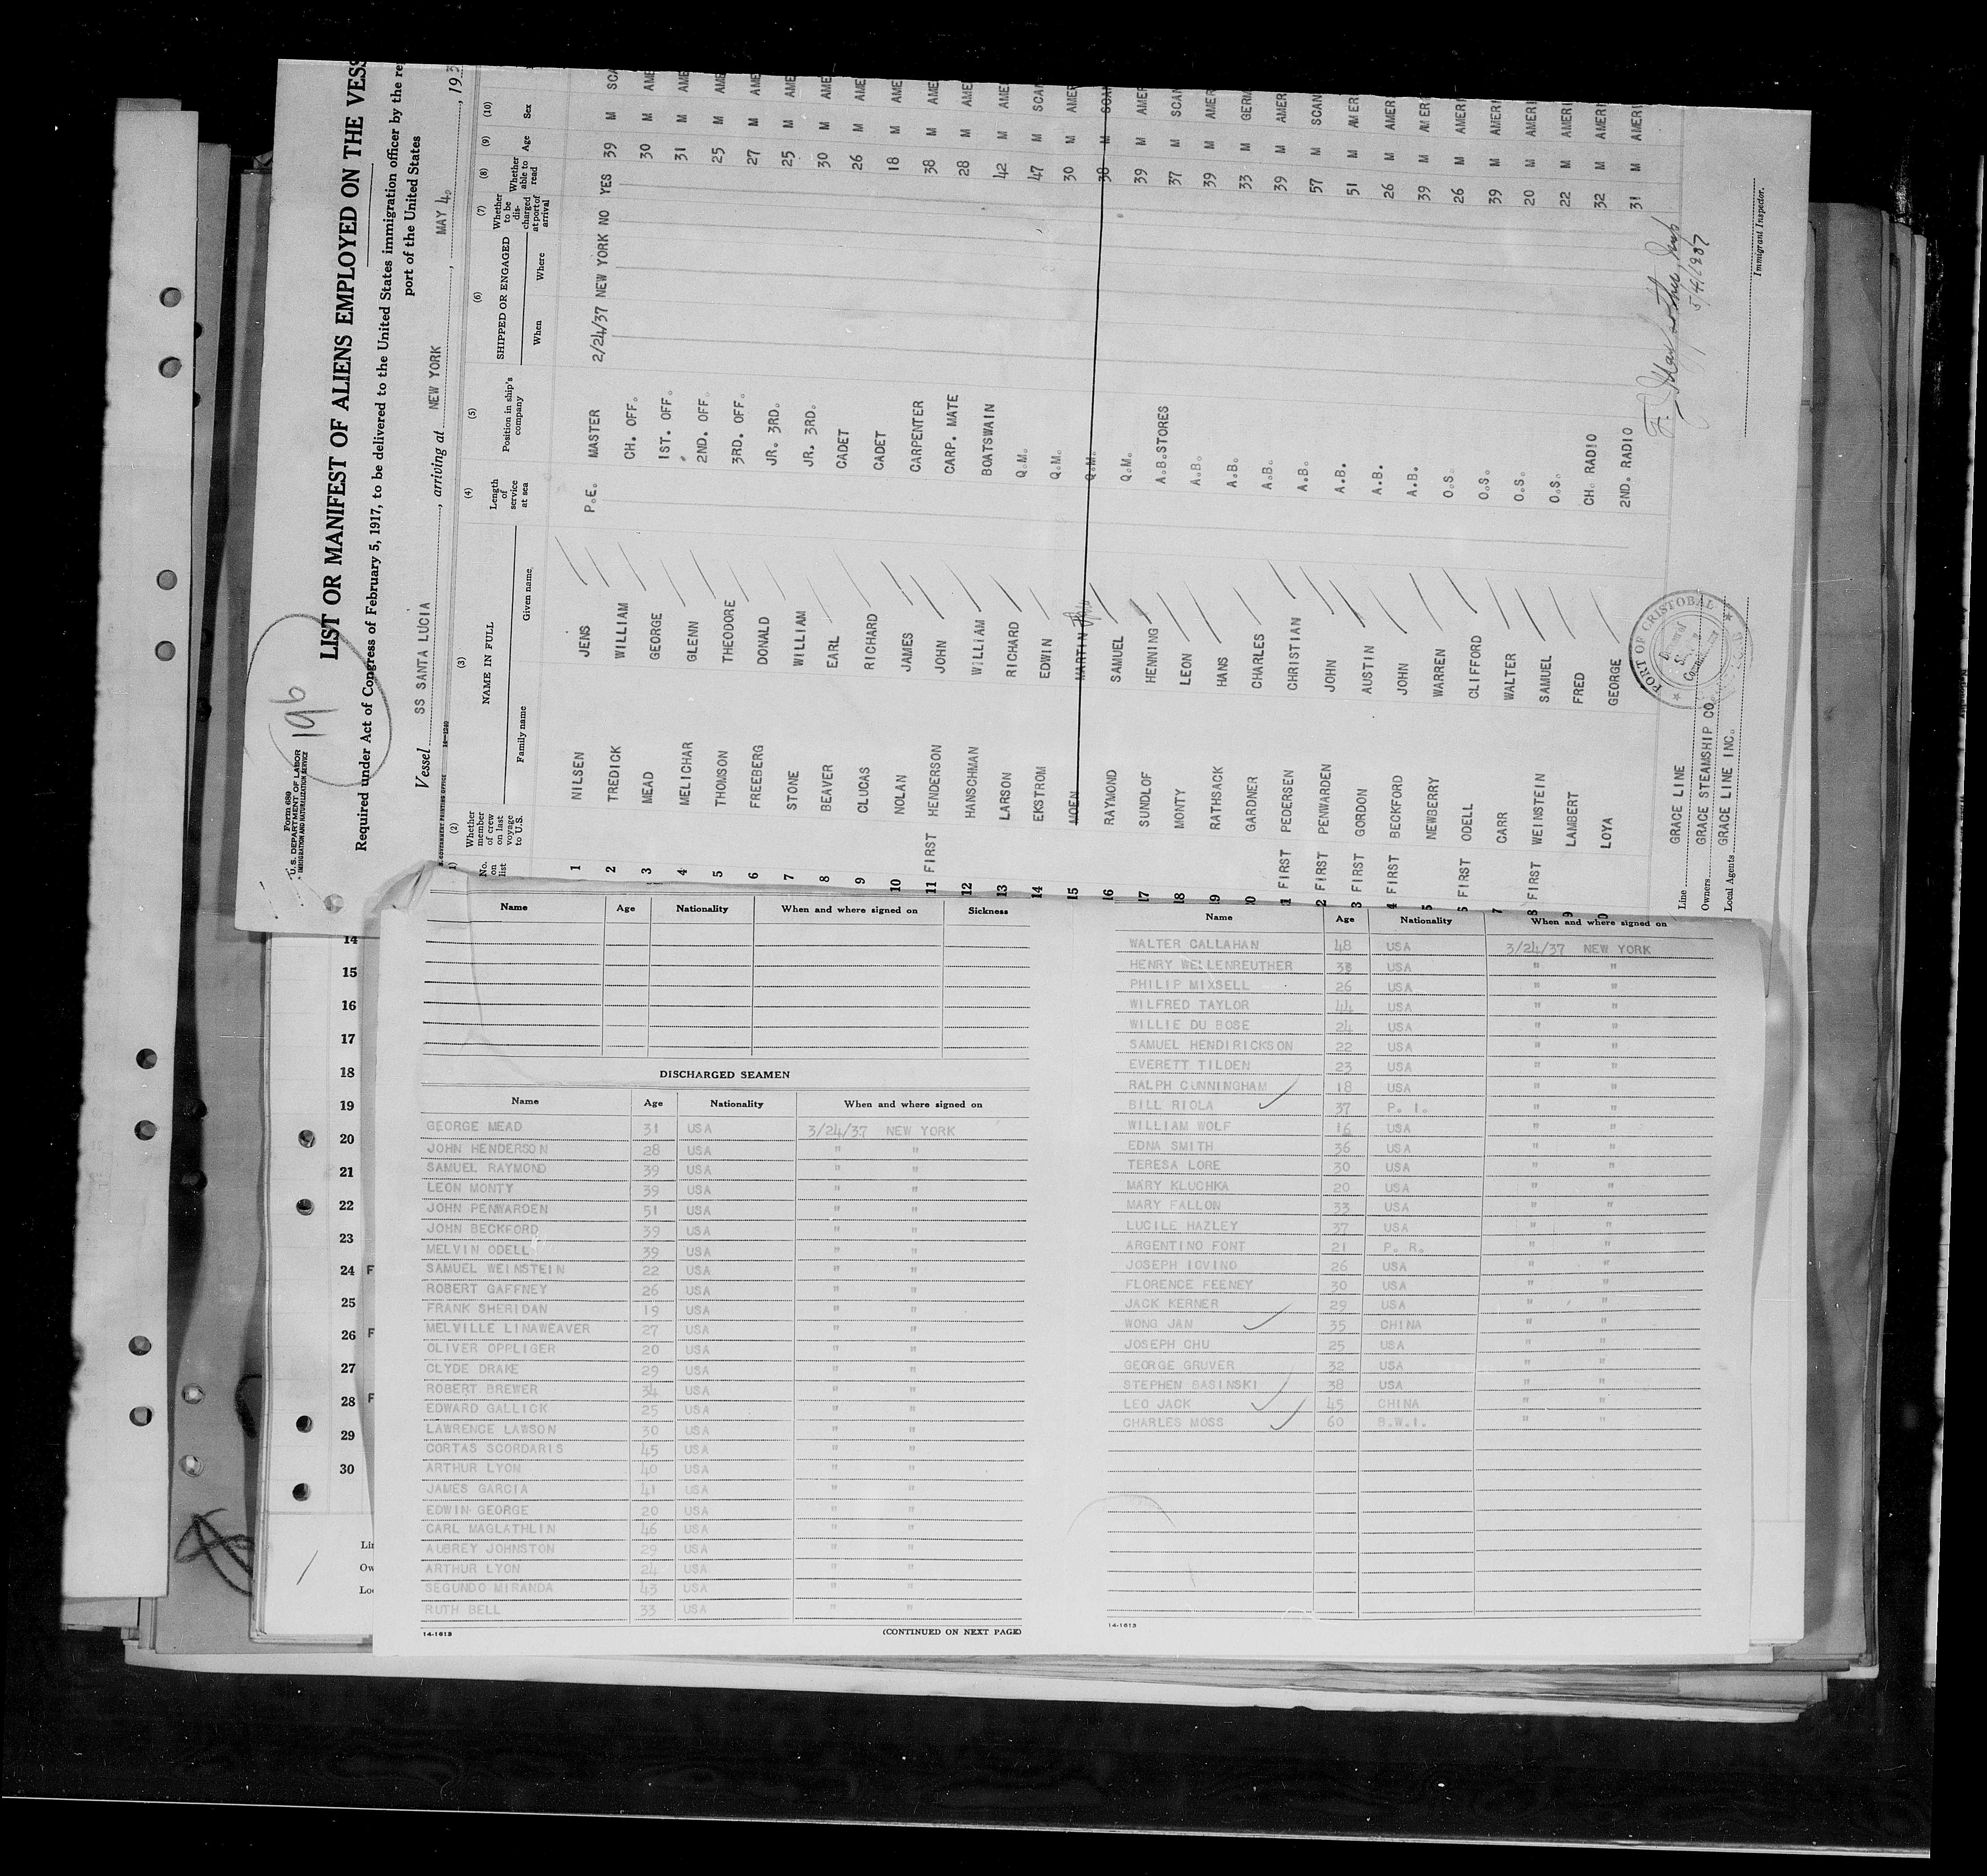 Form 689
U. S. DEPARTMENT OF LABOR
IMMIGRATION AND NATURALIZATION SERVICE
196
LIST OR MANIFEST OF ALIENS EMPLOYED ON THE VESS
Required under Act of Congress of February 5, 1917, to be delivered to the United States immigration officer by the re
port of the United States
Vessel SS SANTA LUCIA, arriving at NEW YORK, MAY 4., 193
U.S. GOVERNMENT PRINTING OFFICE
(1) (2) (3) (4) (5) (6) (7) (8) (9) (10)
No. on list
Whether member of crew on last voyage to U.S.
NAME IN FULL
Family name Given name
Length of service at sea
Position in ship's company
SHIPPED OR ENGAGED
When Where
Whether to be discharged at port of arrival
Whether able to read
Age
Sex
1 NILSEN JENS P.E. MASTER 2/24/37 NEW YORK NO YES 39 M SCA
2 TREDICK WILLIAM CH. OFF. 30 M AME
3 MEAD GEORGE 1ST. OFF. 31 M AME
4 MELICHAR GLENN 2ND. OFF. 25 M AME
5 THOMSON THEODORE 3RD. OFF. 27 M AME
6 FREEBERG DONALD JR. 3RD. 25 M AME
7 STONE WILLIAM JR. 3RD. 30 M AME
8 BEAVER EARL CADET 26 M AME
9 CLUCAS RICHARD CADET 18 M AME
10 NOLAN JAMES CARPENTER 38 M AME
11 FIRST HENDERSON JOHN CARP. MATE 28 M AME
12 HANSCHMAN WILLIAM BOATSWAIN 42 M AME
13 LARSON RICHARD Q.M. 47 M SCAN
14 EKSTROM EDWIN Q.M. 30 M AMER
15 MOEN MARTIN Q.M. 38 M SCAN
16 RAYMOND SAMUEL Q.M. 39 M AMER
17 SUNDLOF HENNING A.B.STORES 37 M SCAN
18 MONTY LEON A.B. 39 M AMER
19 RATHSACK HANS A.B. 33 M GERM
20 GARDNER CHARLES A.B. 39 M AMER
1 FIRST PEDERSEN CHRISTIAN A.B. 57 M SCAN
2 FIRST PENWARDEN JOHN A.B. 51 M AMER
3 FIRST GORDON AUSTIN A.B. 26 M AMERI
4 FIRST BECKFORD JOHN A.B. 39 M AMERI
5 NEWBERRY WARREN O.S. 26 M AMERI
6 FIRST ODELL CLIFFORD O.S. 39 M AMERI
7 CARR WALTER O.S. 20 M AMERI
8 FIRST WEINSTEIN SAMUEL O.S. 22 M AMERI
9 LAMBERT FRED CH. RADIO 32 M AMERI
0 LOYA GEORGE 2ND. RADIO 31 M AMERI
5/4/1937
PORT OF CRISTOBAL
Line GRACE LINE
Owners GRACE STEAMSHIP CO.
Local Agents GRACE LINE INC.
Immigrant Inspector.
14
15
16
17
18
19
20
21
22
23
24 F
25
26 F
27
28 F
29
30
Lin
Ow
Loc
Name Age Nationality When and where signed on Sickness
DISCHARGED SEAMEN
Name Age Nationality When and where signed on
GEORGE MEAD 31 USA 3/24/37 NEW YORK
JOHN HENDERSON 28 USA " "
SAMUEL RAYMOND 39 USA " "
LEON MONTY 39 USA " "
JOHN PENWARDEN 51 USA " "
JOHN BECKFORD 39 USA " "
MELVIN ODELL 39 USA " "
SAMUEL WEINSTEIN 22 USA " "
ROBERT GAFFNEY 26 USA " "
FRANK SHERIDAN 19 USA " "
MELVILLE LINAWEAVER 27 USA " "
OLIVER OPPLIGER 20 USA " "
CLYDE DRAKE 29 USA " "
ROBERT BREWER 34 USA " "
EDWARD GALLICK 25 USA " "
LAWRENCE LAWSON 30 USA " "
CORTAS SCORDARIS 45 USA " "
ARTHUR LYON 40 USA " "
JAMES GARCIA 41 USA " "
EDWIN GEORGE 20 USA " "
CARL MAGLATHLIN 46 USA " "
AUBREY JOHNSTON 29 USA " "
ARTHUR LYON 24 USA " "
SEGUNDO MIRANDA 43 USA " "
RUTH BELL 33 USA " "
14-1613 (CONTINUED ON NEXT PAGE)
Name Age Nationality When and where signed on
WALTER CALLAHAN 48 USA 3/24/37 NEW YORK
HENRY WELLENREUTHER 38 USA " "
PHILIP MIXSELL 26 USA " "
WILFRED TAYLOR 44 USA " "
WILLIE DU BOSE 24 USA " "
SAMUEL HENDIRICKSON 22 USA " "
EVERETT TILDEN 23 USA " "
RALPH CUNNINGHAM 18 USA " "
BILL RIOLA 37 P. I. " "
WILLIAM WOLF 16 USA " "
EDNA SMITH 36 USA " "
TERESA LORE 30 USA " "
MARY KLUCHKA 20 USA " "
MARY FALLON 33 USA " "
LUCILE HAZLEY 37 USA " "
ARGENTINO FONT 21 P. R. " "
JOSEPH IOVINO 26 USA " "
FLORENCE FEENEY 30 USA " "
JACK KERNER 29 USA " "
WONG JAN 35 CHINA " "
JOSEPH CHU 25 USA " "
GEORGE GRUVER 32 USA " "
STEPHEN BASINSKI 38 USA " "
LEO JACK 45 CHINA " "
CHARLES MOSS 60 B.W.I. " "
14-1613